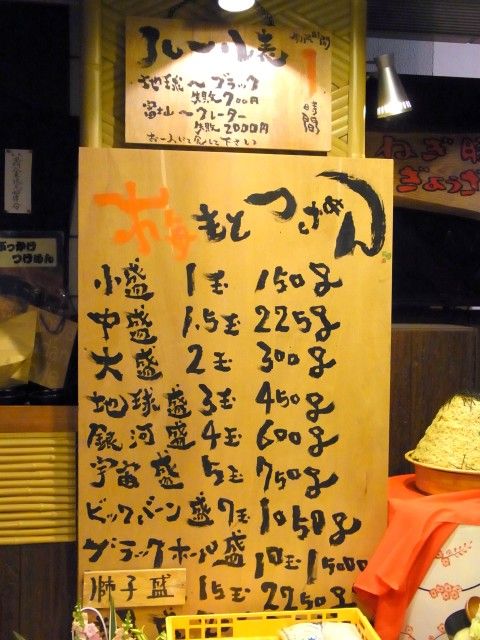 ルール表
制限時間
1時間
地球〜ブラック
失敗700円
富士山〜クレーター
失敗2000円
お一人にて食して下さい
梅もとつけめん
小盛 1玉 150g
中盛 1.5玉 225g
大盛 2玉 300g
地球盛 3玉 450g
銀河盛 4玉 600g
宇宙盛 5玉 750g
ビックバーン盛 7玉 1050g
ブラックホール盛 10玉 1500g
獅子盛 15玉 2250g
ぶっかけ
つけめん
ねぎ
ぎょうざ